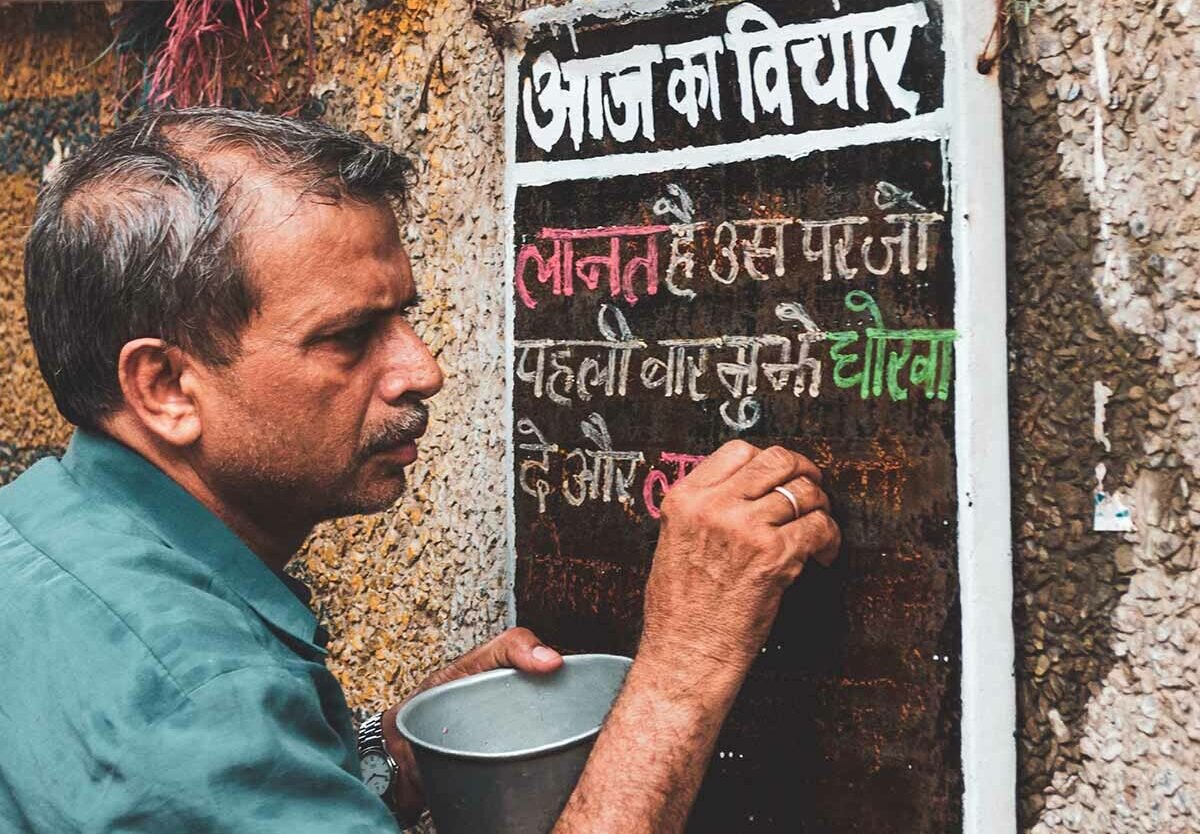 आज का विचार
लानत है उस पर जो
पहली बार मुझे धोखा
दे और